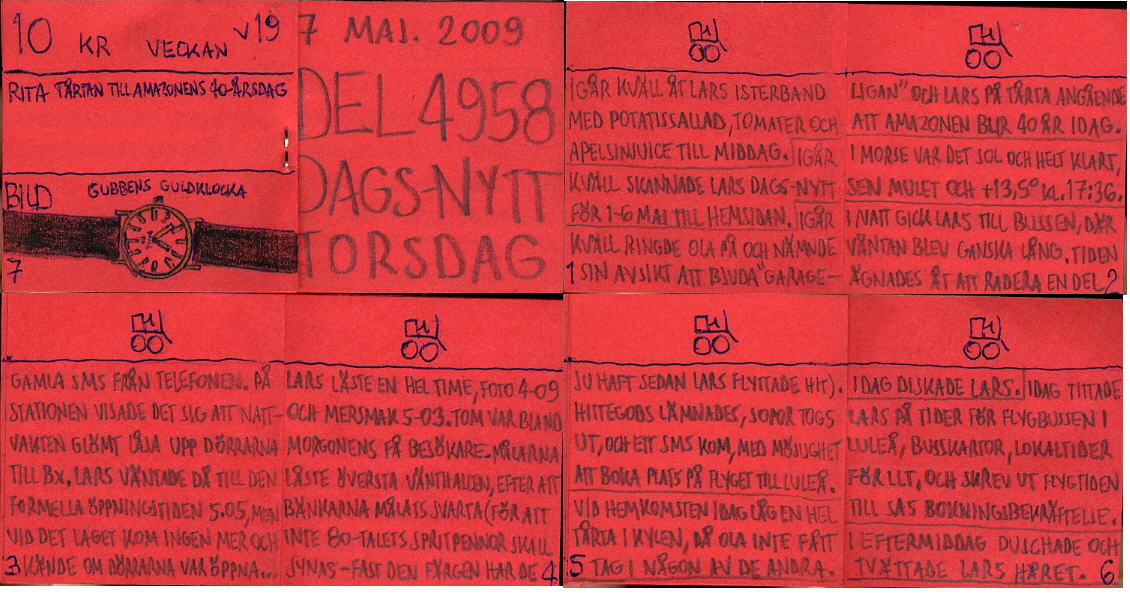 10 KR VECKAN V19
RITA TÅRTAN TILL AMAZONENS 40-ÅRSDAG
BILD GUBBENS GULDKLOCKA
7
7 MAJ. 2009
DEL 4958
DAGS-NYTT
TORSDAG
IGÅR KVÄLL ÅT LARS ISTERBAND
MED POTATISSALLAD, TOMATER OCH
APELSINJUICE TILL MIDDAG. IGÅR
KVÄLL SKANNADE LARS DAGS-NYTT
FÖR 1-6 MAJ TILL HEMSIDAN. IGÅR
KVÄLL RINGDE OLA PÅ OCH NÄMNDE
1 SIN AVSIKT ATT BJUDA "GARAGE-
LIGAN" OCH LARS PÅ TÅRTA ANGÅENDE
ATT AMAZONEN BLIR 40 ÅR IDAG.
I MORSE VAR DET SOL OCH HELT KLART,
SEN MULET OCH +13,5° KL. 17:36.
I NATT GICK LARS TILL BUSSEN, DÄR
VÄNTAN BLEV GANSKA LÅNG. TIDEN
ÄGNADES ÅT ATT RADERA EN DEL 2
GAMLA SMS FRÅN TELEFONEN. PÅ
STATIONEN VISADE DET SIG ATT NATT-
VAKTEN GLÖMT LÅSA UPP DÖRRARNA
TILL Bx. LARS VÄNTADE DÅ TILL DEN
FORMELLA ÖPPNINGSTIDEN 5.05, MEN
VID DET LAGET KOM INGEN MER OCH
3 KÄNDE OM DÖRRARNA VAR ÖPPNA...
LARS LÄSTE EN HEL TIME, FOTO 4-09
OCH MERSMAK 5-03. TOM VAR BLAND
MORGONENS FÅ BESÖKARE. MÅLARNA
LÅSTE ÖVERSTA VÄNTHALLEN, EFTER ATT
BÄNKARNA MÅLATS SVARTA (FÖR ATT
INTE 80-TALETS SPRITPENNOR SKALL
SYNAS - FAST DEN FÄRGEN HAR DE 4
JU HAFT SEDAN LARS FLYTTADE HIT).
HITTEGODS LÄMNADES, SOPOR TOGS
UT, OCH ETT SMS KOM, MED MÖJLIGHET
ATT BOKA PLATS PÅ FLYGET TILL LULEÅ.
VID HEMKOMSTEN IDAG LÅG EN HEL
TÅRTA I KYLEN, DÅ OLA INTE FÅTT
5 TAG I NÅGON AV DE ANDRA.
IDAG DISKADE LARS. IDAG TITTADE
LARS PÅ TIDER FÖR FLYGBUSSEN I
LULEÅ, BUSSKARTOR, LOKALTIDER
FÖR LLT, OCH SKREV UT FLYGTIDEN
TILL SAS BOKNINGSBEKRÄFTELSE.
I EFTERMIDDAG DUSCHADE OCH
TVÄTTADE LARS HÅRET. 6